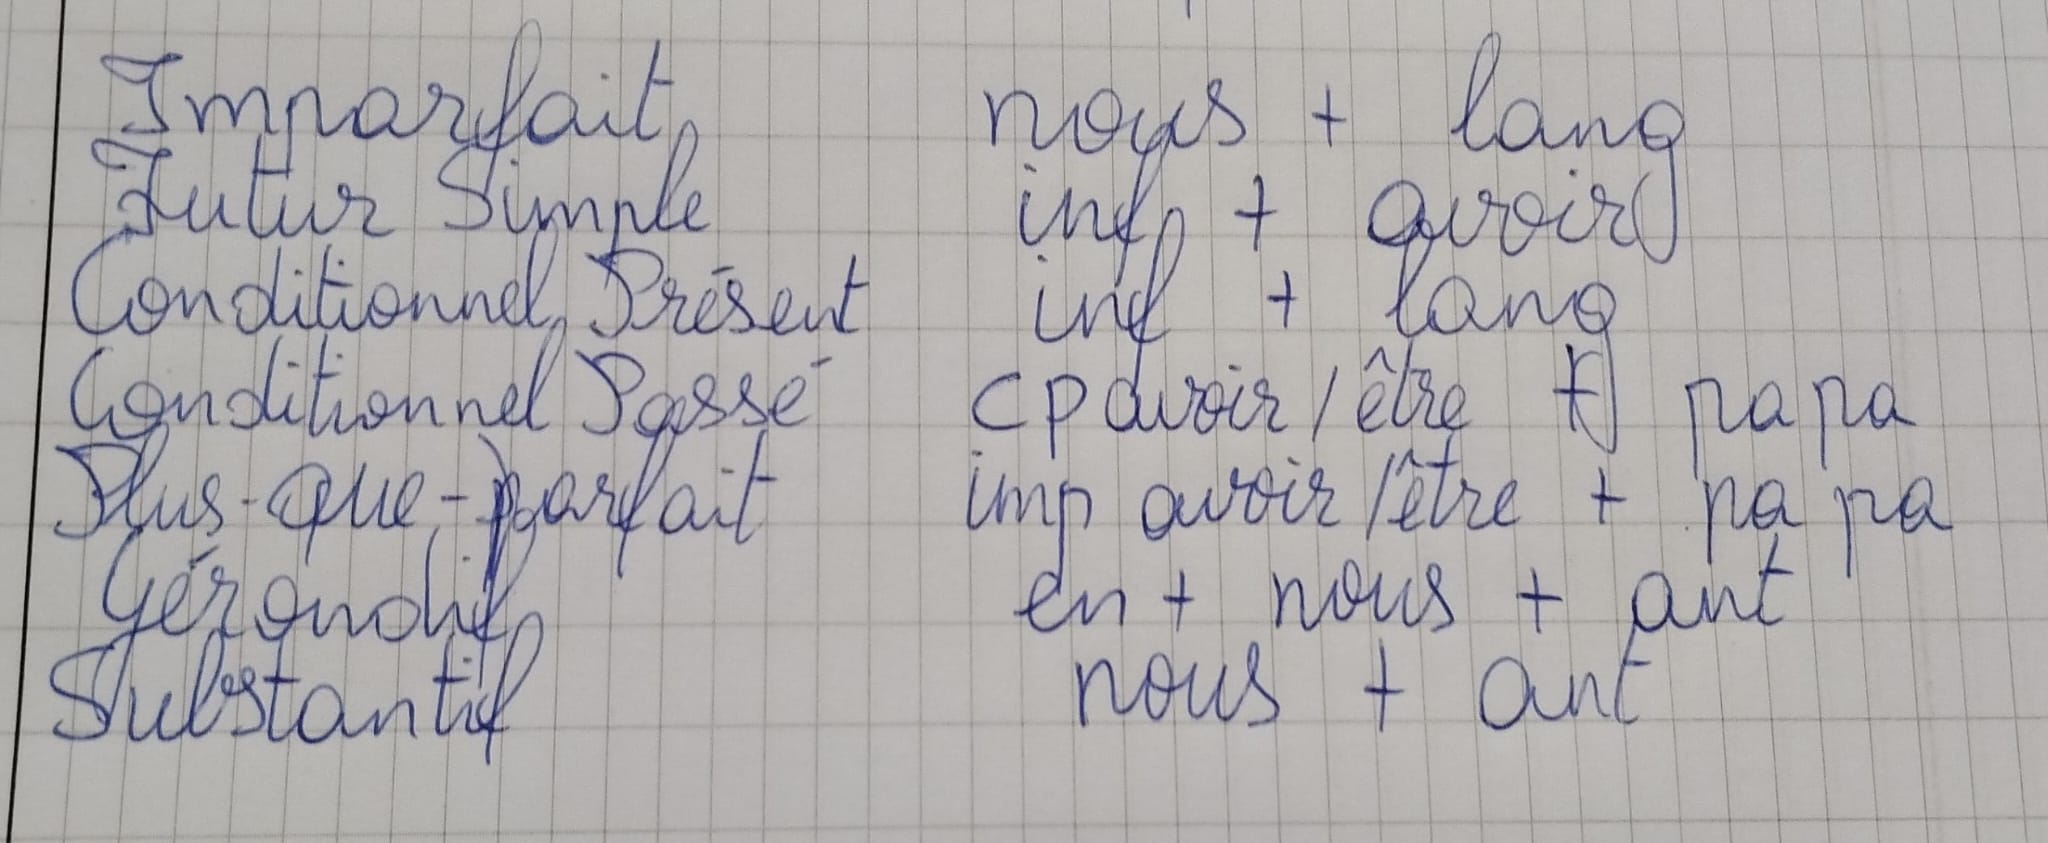 Imparfait nous + lang
Futur Simple inf + avoir
Conditionnel Présent inf + lang
Conditionnel Passé CP avoir / être + pa pa
Plus-que-parfait imp avoir / être + pa pa
Gérondif en + nous + ant
Substantif nous + ant